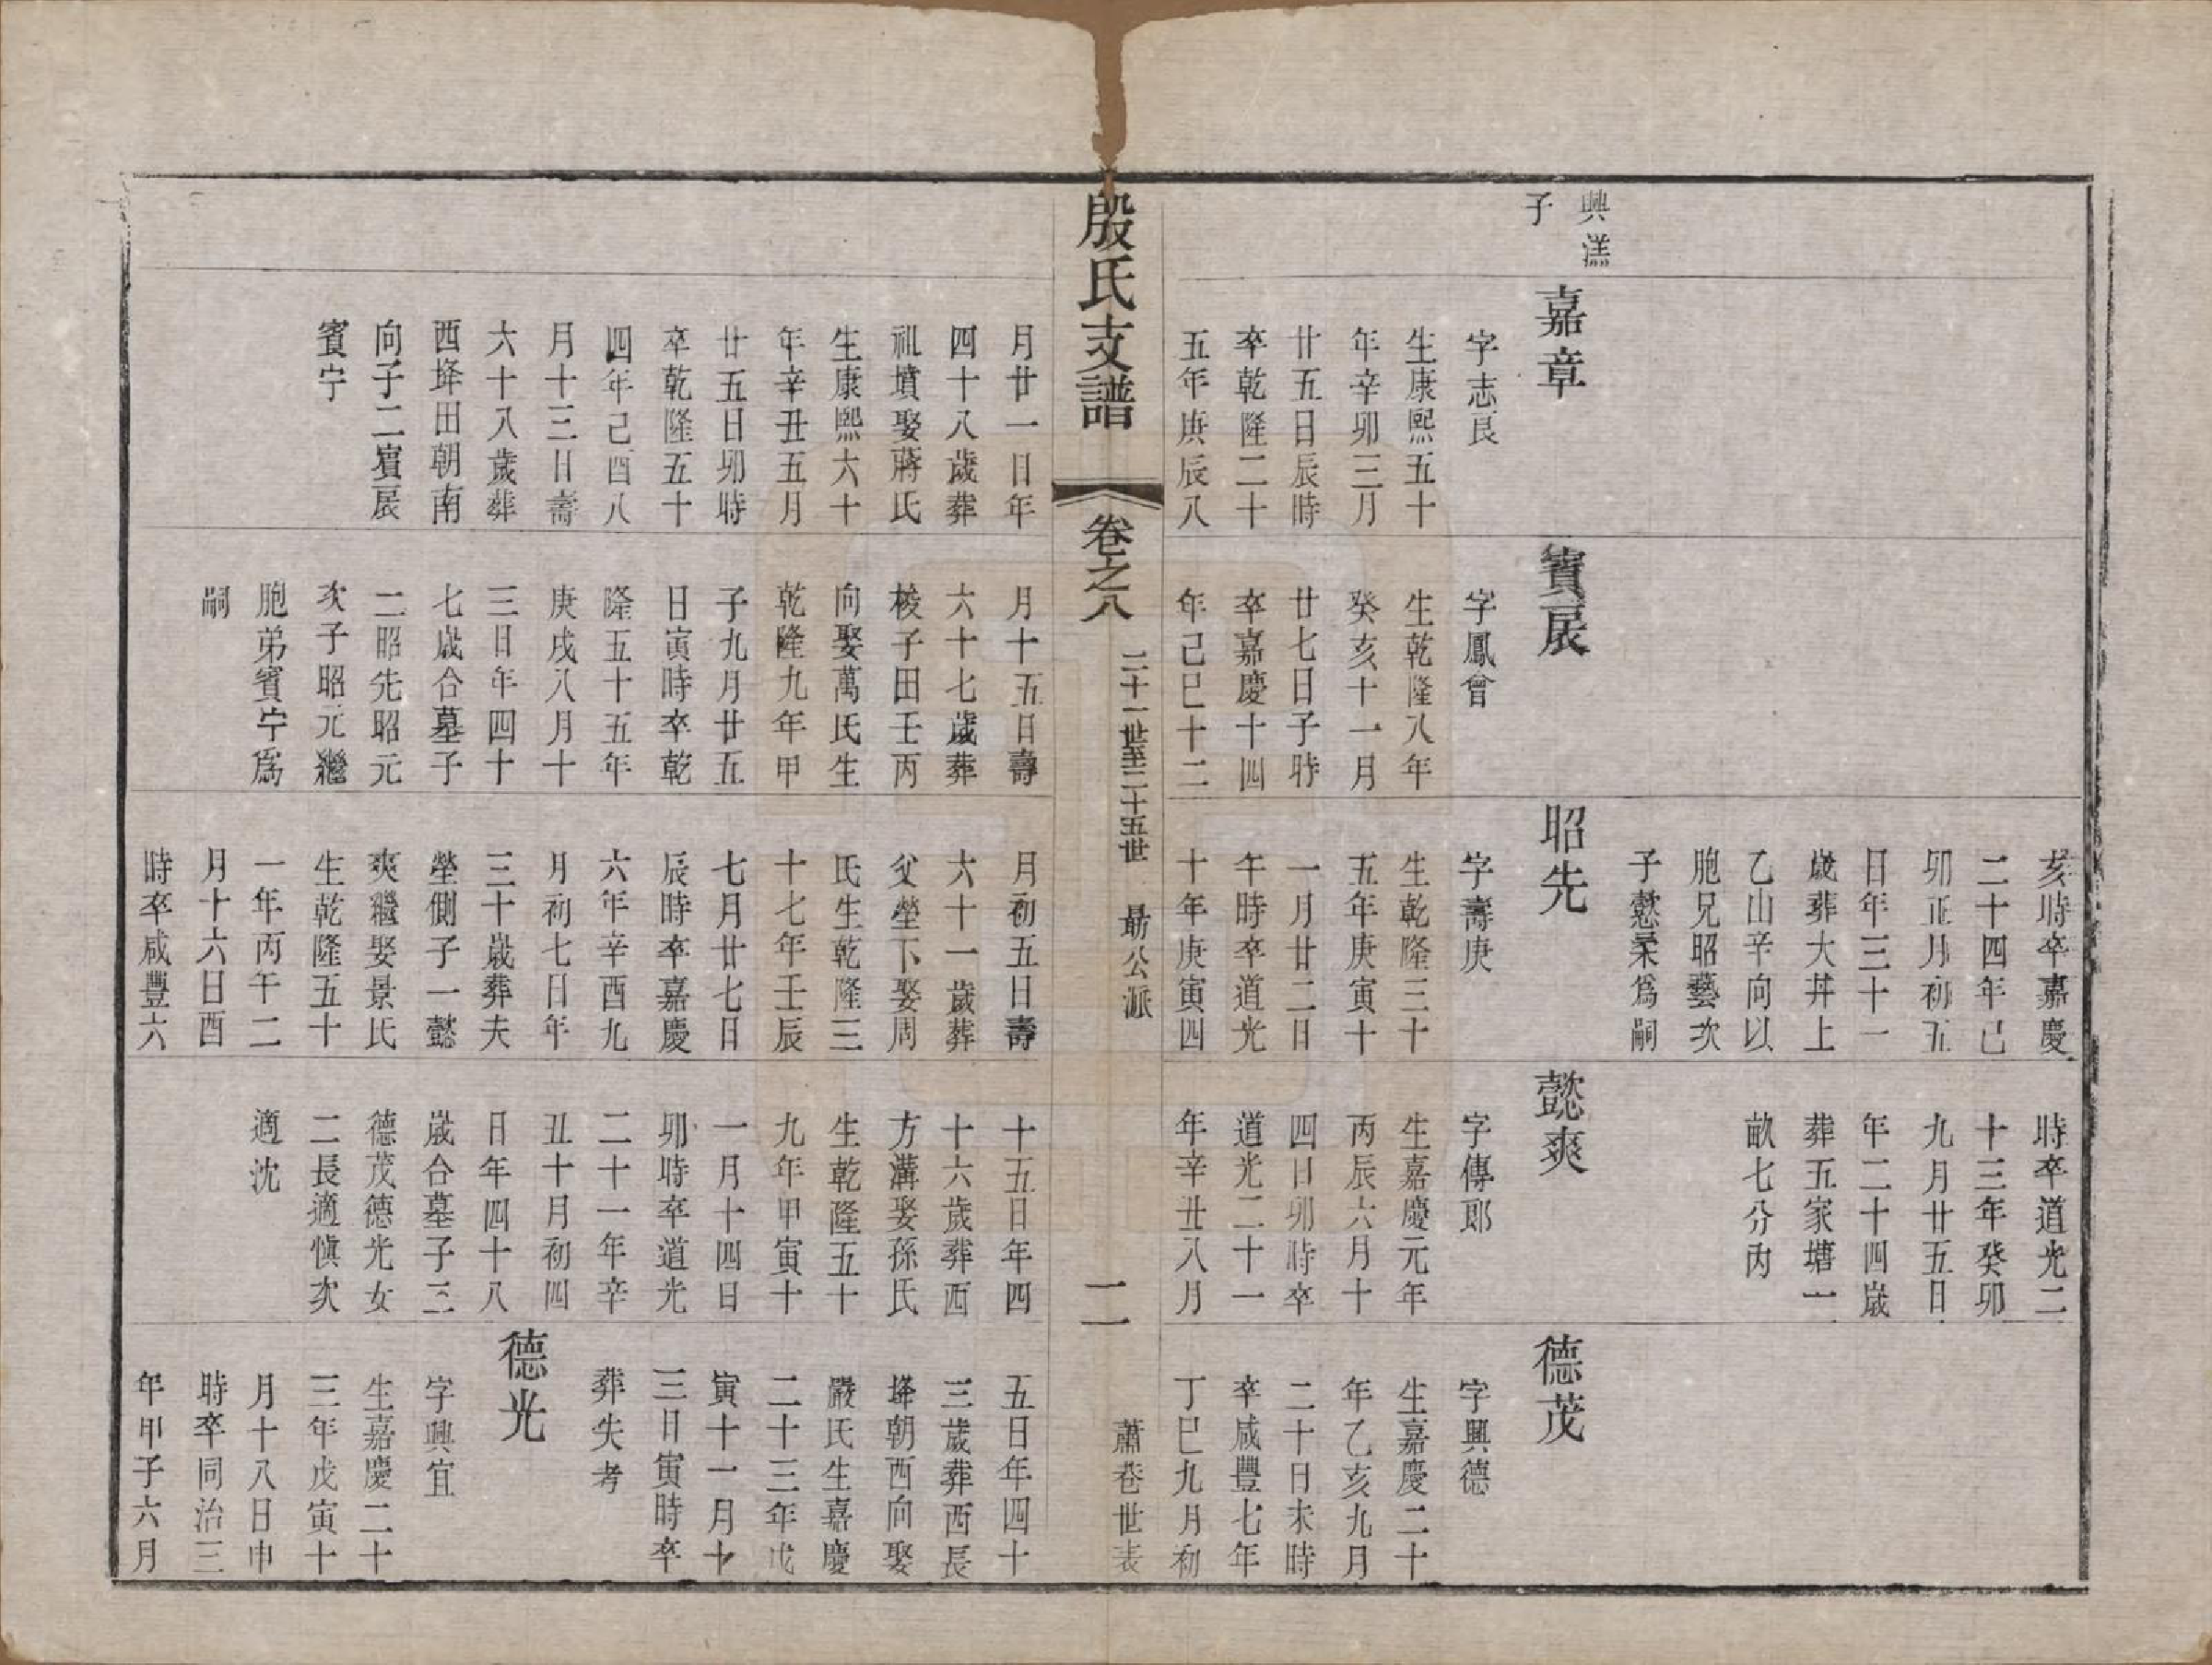 興洋
子
嘉章
字志良
生康熙五十
年辛卯三月
廿五日辰時
卒乾隆二十
五年庚辰八
賓展
字鳳曾
生乾隆八年
癸亥十一月
廿七日子時
卒嘉慶十四
年己巳十二
亥時卒嘉慶
二十四年己
卯正月初五
日年三十一
歲葬大井上
乙山辛向以
胞兄昭藝次
子愻柔爲嗣
昭先
字壽庚
生乾隆三十
五年庚寅十
一月廿二日
午時卒道光
十年庚寅四
時卒道光二
十三年癸卯
九月廿五日
年二十四歲
葬五家塘一
畝七分內
懿爽
字傳郎
生嘉慶元年
丙辰六月十
四日卯時卒
道光二十一
年辛丑八月
德茂
字興德
生嘉慶二十
年乙亥九月
二十日未時
卒咸豐七年
丁巳九月初
殷氏支譜
卷之八
二十一世至二十五世
勗公派
二
蕭巷世表
月廿一日年
四十八歲葬
祖墳娶蔣氏
生康熙六十
年辛丑五月
廿五日卯時
卒乾隆五十
四年己酉八
月十三日壽
六十八歲葬
西垟田朝南
向子二賓展
賓宁
月十五日壽
六十七歲葬
梭子田壬丙
向娶萬氏生
乾隆九年甲
子九月廿五
日寅時卒乾
隆五十五年
庚戌八月十
三日年四十
七歲合墓子
二昭先昭元
次子昭元繼
胞弟賓宁爲
嗣
月初五日壽
六十一歲葬
父塋下娶周
氏生乾隆三
十七年壬辰
七月廿七日
辰時卒嘉慶
六年辛酉九
月初七日年
三十歲葬夫
塋側子一懿
爽繼娶景氏
生乾隆五十
一年丙午二
月十六日酉
時卒咸豐六
十五日年四
十六歲葬西
方溝娶孫氏
生乾隆五十
九年甲寅十
一月十四日
卯時卒道光
二十一年辛
丑十月初四
日年四十八
歲合墓子三
德茂德光女
二長適愼次
適沈
五日年四十
三歲葬西長
垟朝西向娶
嚴氏生嘉慶
二十三年戊
寅十一月十
三日寅時卒
葬失考
德光
字興宜
生嘉慶二十
三年戊寅十
月十八日申
時卒同治三
年甲子六月